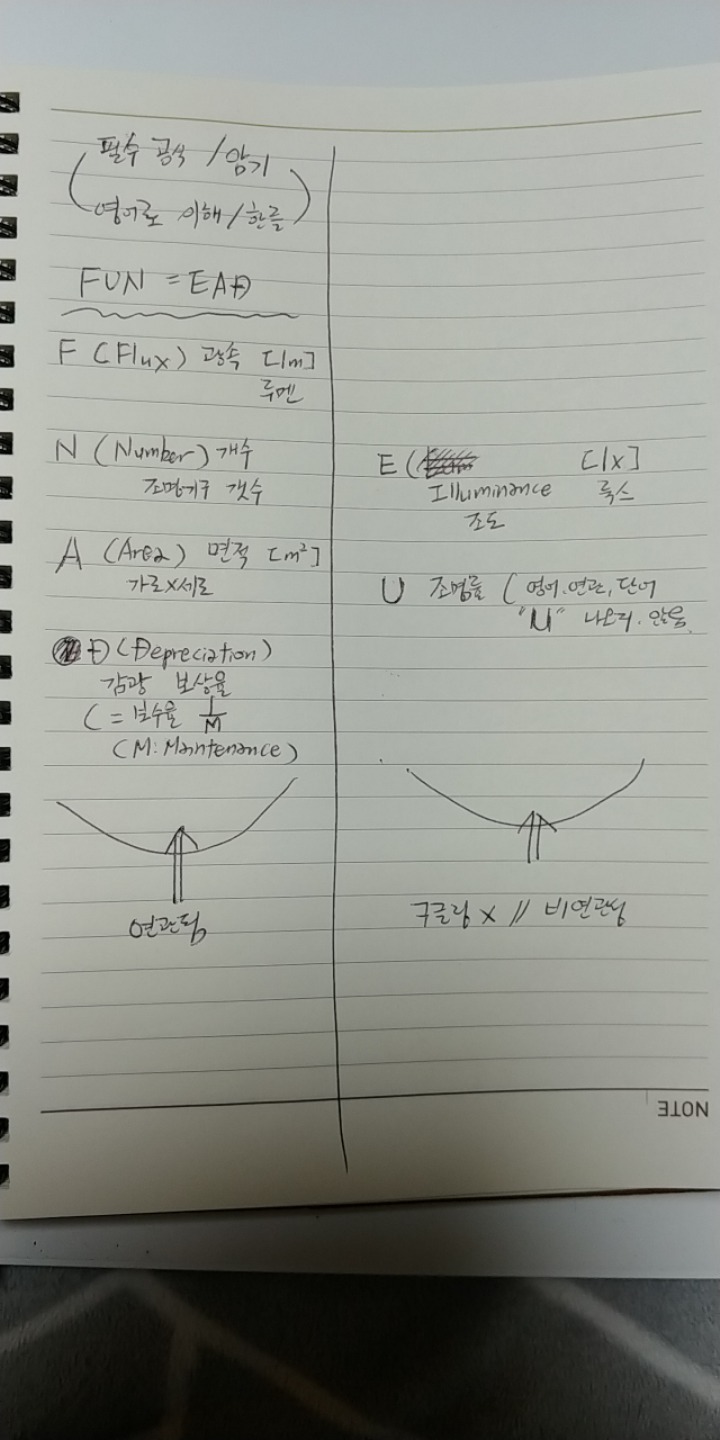 필수 공식 / 암기
영어로 이해 / 한글
FUN = EAD
F (Flux) 광속 [lm]
루멘
N (Number) 개수
조명기구 갯수
A (Area) 면적 [m²]
가로×세로
D (Depreciation)
감광 보상율
( = 보수율 1/M
(M: Maintenance)
연관됨
E ( [lx]
Illuminance 룩스
조도
U 조명률 ( 영어.연관, 단어
"U" 나오지. 않음.
구글링 × // 비연관성
NOTE